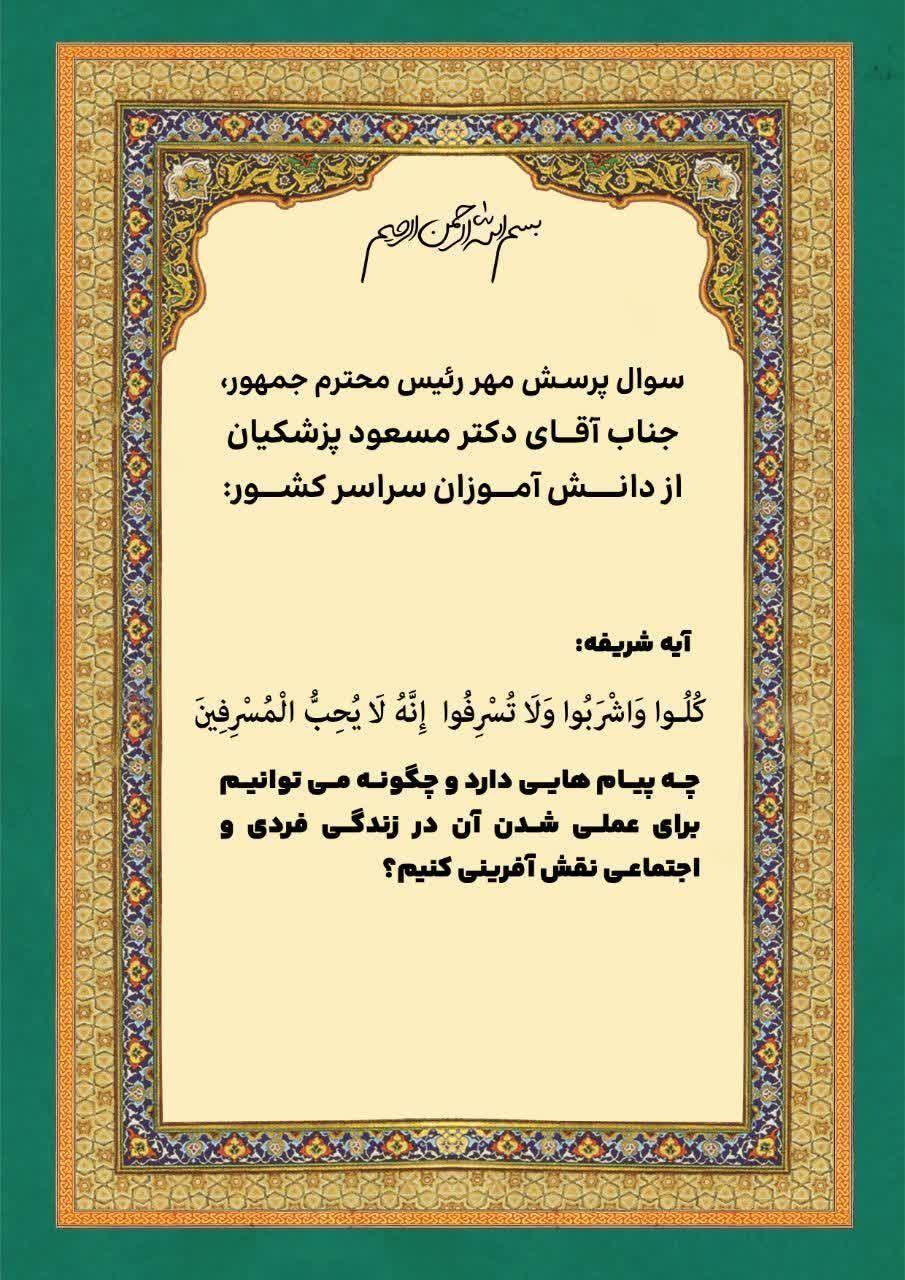 بسم الله الرحمن الرحیم
سوال پرسش مهر رئیس محترم جمهور،
جناب آقــای دکتر مسعود پزشکیان
از دانـــش آمــوزان سراسر کشــور:
آیه شریفه:
كُلُـوا وَاشْرَبُوا وَلَا تُسْرِفُوا إِنَّهُ لَا يُحِبُّ الْمُسْرِفِينَ
چـه پیـام هایـی دارد و چگونـه مـی توانیـم
برای عملـی شـدن آن در زندگـی فردی و
اجتماعـی نقش آفرینی کنیم؟